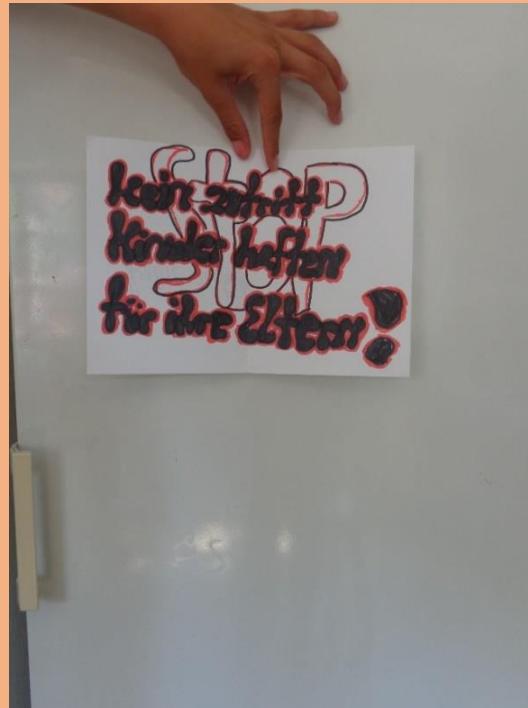 StOP
kein zutritt
Kinder haften
für ihre Eltern!